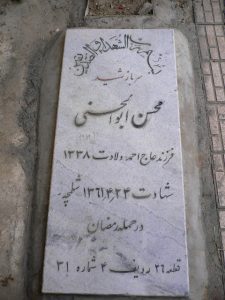 بسم رب الشهداء و الصدیقین
سرباز شهید
محسن ابوالحسنی
فرزند حاج احمد ولادت ۱۳۳۸
شهادت ۱۳۶۱٫۴٫۲۴ شلمچه
در حمله رمضان
قطعه ۲۶ ردیف ۴ شماره ۳۱